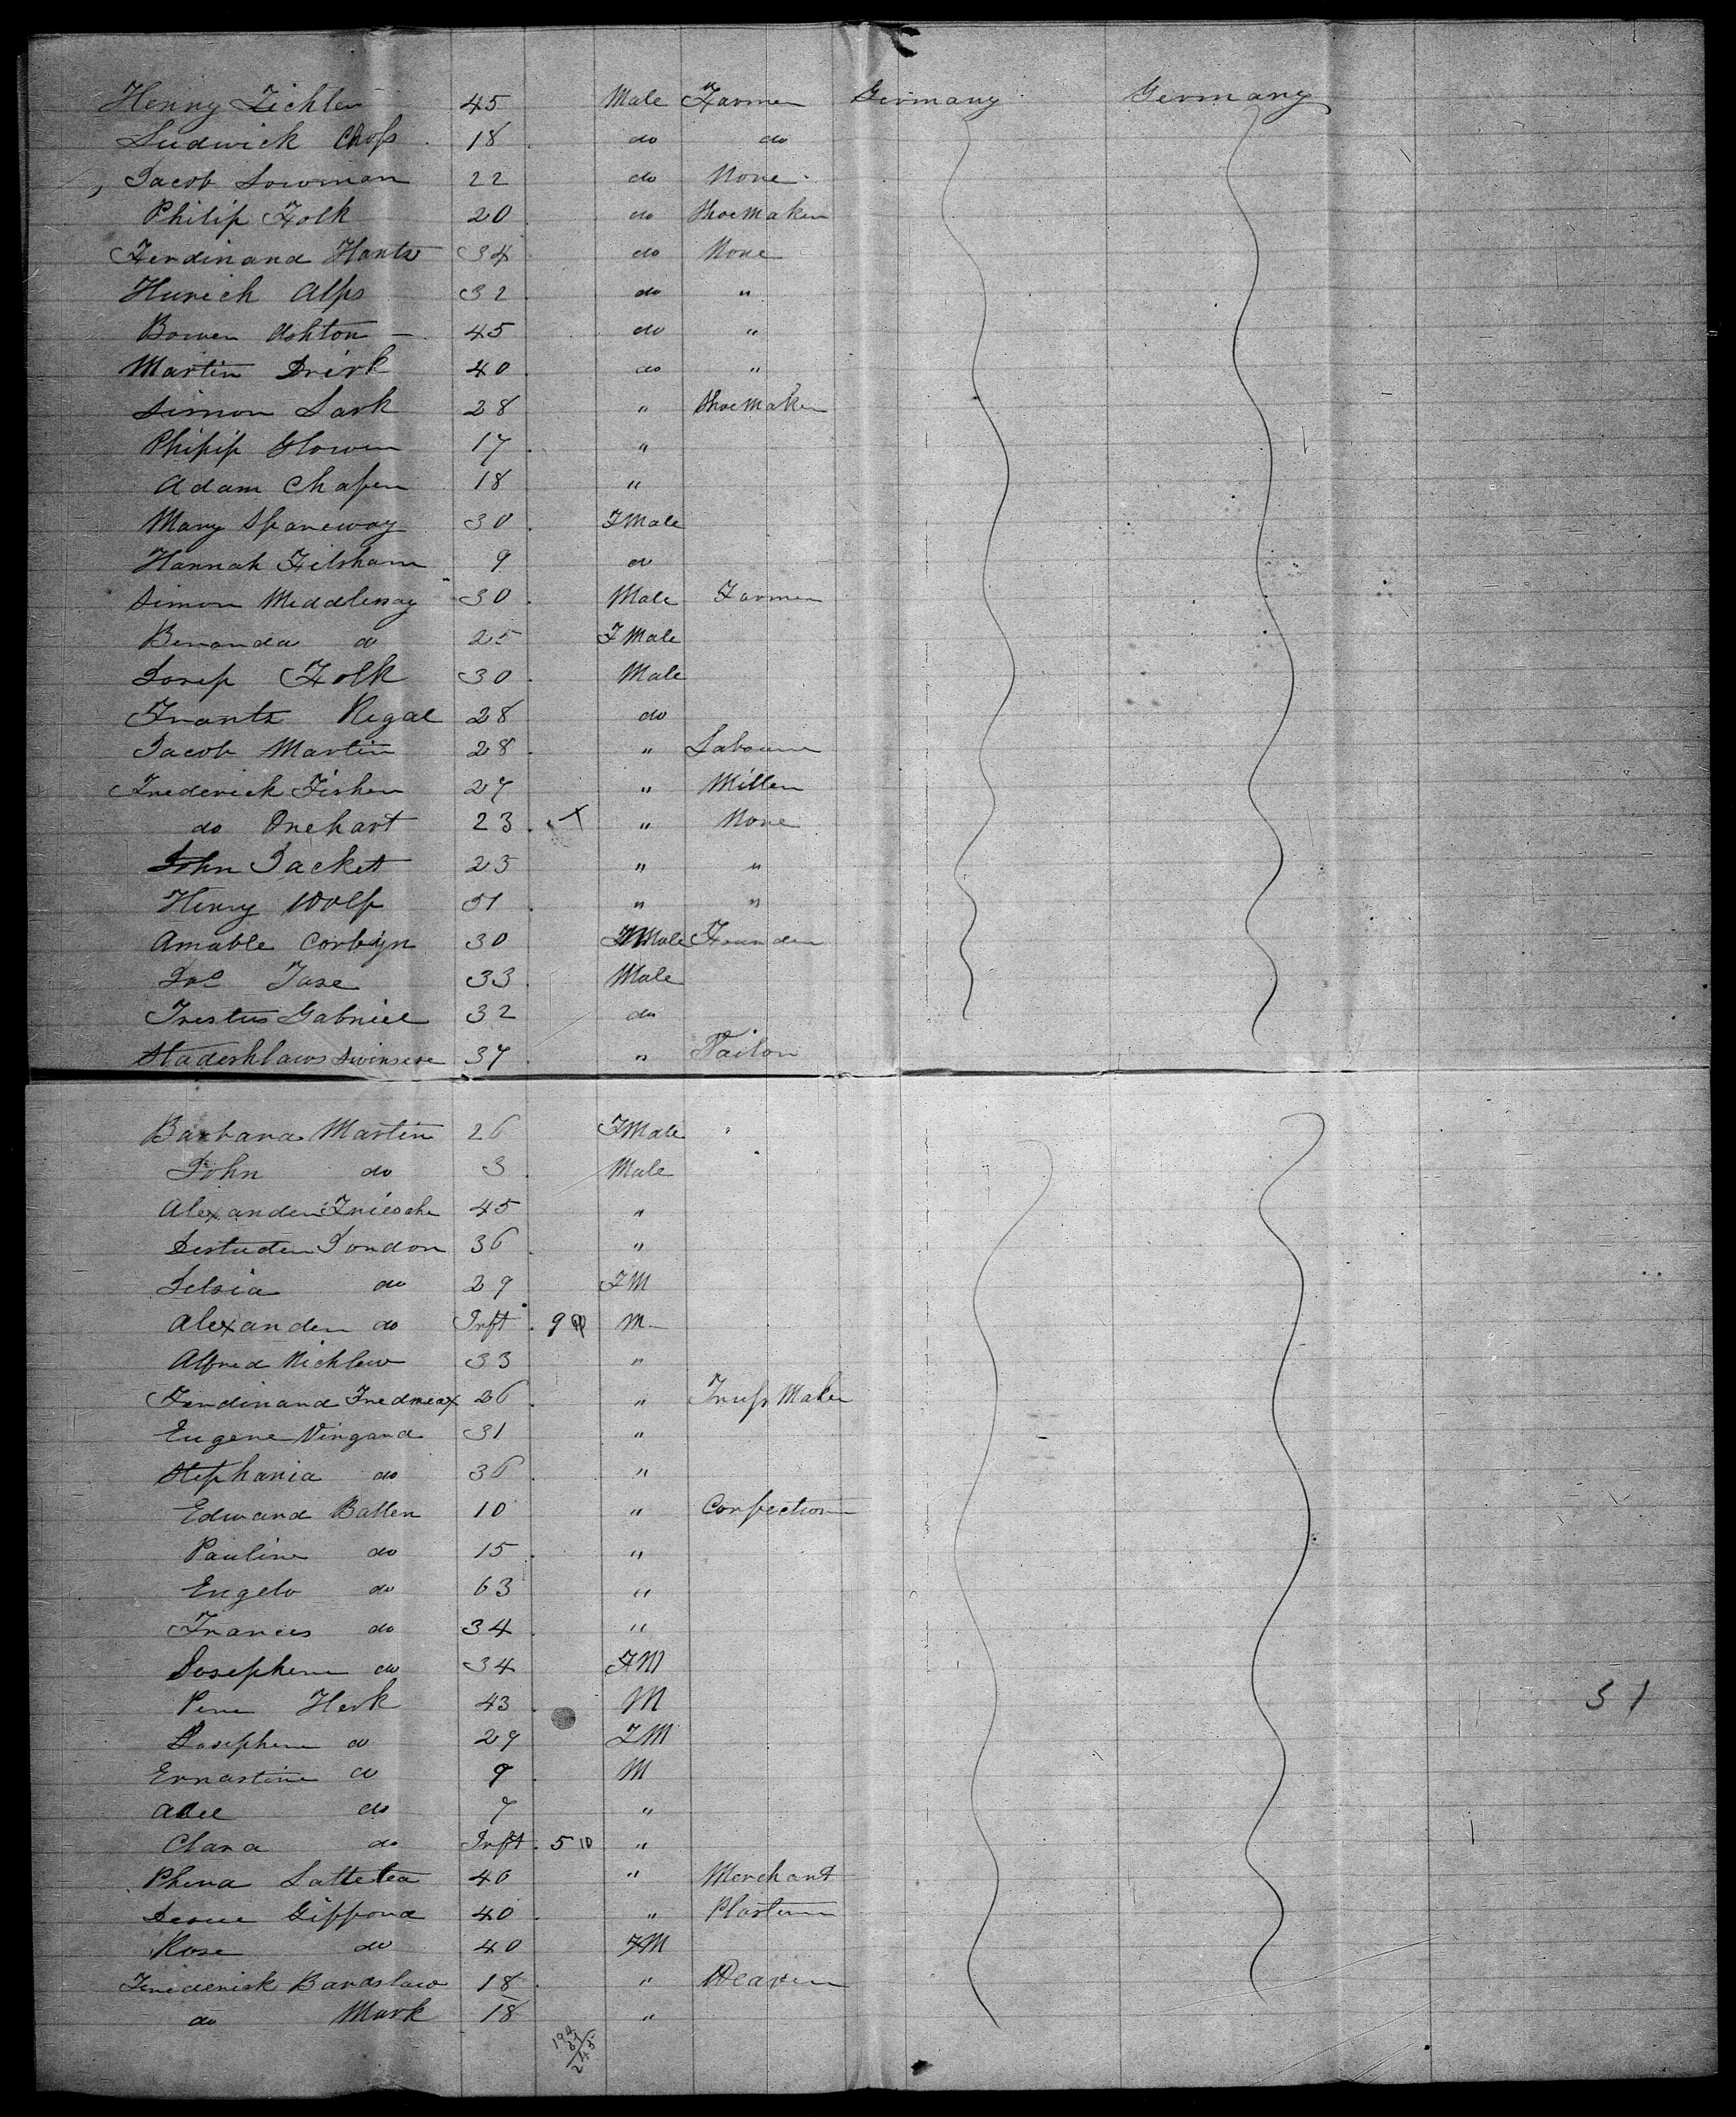 Henry Zichler 45 Male Farmer Germany Germany
Ludwick Choss 18 do do
Jacob Lowman 22 do None
Philip Folk 20 do Shoe Maker
Ferdinand Hants 34 do None
Hurich Alps 32 do "
Bower Ashton 45 do "
Martin Drirk 40 do "
Simon Lark 28 " Shoe Maker
Phipip Glower 17 "
Adam Chafer 18 "
Mary Spaneway 30 FMale
Hannah Filsham 9 do
Simon Meddlessay 30 Male Farmer
Benanda do 25 FMale
Josep Folk 30 Male
Frantz Regal 28 do
Jacob Martin 28 " Labourer
Frederick Fisher 27 " Miller
do Onehart 23 X " None
John Jacket 23 " "
Henry Wolf 51 " "
Amable Corbyn 30 FMale Founder
Jase 33 Male
Trestus Gabriel 32 do
Stadershlaws 37 " Tailor
Barbara Martin 26 FMale
John do 3 Male
Alexander Friesche 45 "
London 36 "
Selsia do 29 FM
Alexander do Inft 9 M
Alfred Nichlew 33 "
Ferdinand Fredmeax 26 " Truss Maker
Eugene Vingard 31 "
Stephania do 36 "
Edward Batten 10 " Confection
Pauline do 15 "
Engelo do 63 "
Frances do 34 "
Josephene do 34 FM
Herk 43 M
Josephene do 29 FM
Ernastine do 9 M
do 7 "
Clara do Inft 5 10 "
Phena Lattetea 40 " Merchant
Gifford 40 " Plasterer
Rose do 40 FM
Frederick Bardslaw 18 " Weaver
do Mark 18 "
51
194
51
245